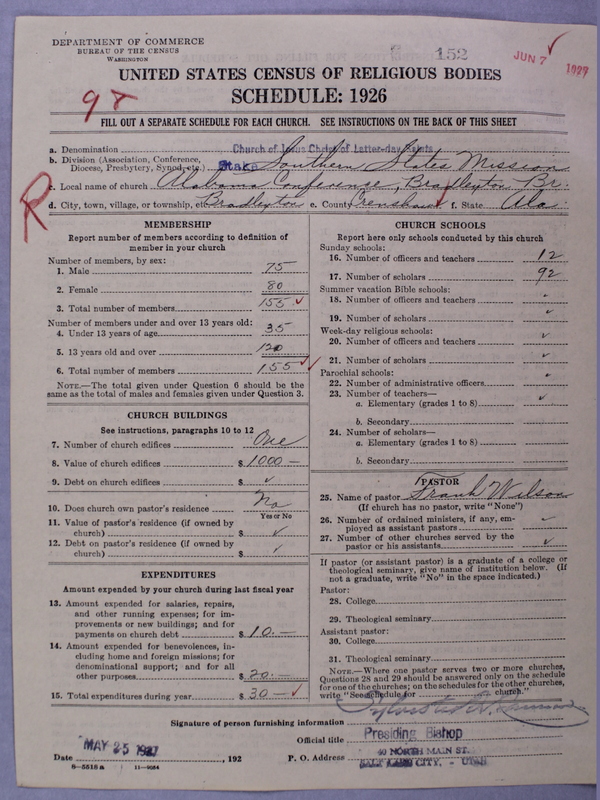 DEPARTMENT OF COMMERCE
BUREAU OF THE CENSUS
WASHINGTON
152
JUN 7 1927
98
UNITED STATES CENSUS OF RELIGIOUS BODIES
SCHEDULE: 1926
FILL OUT A SEPARATE SCHEDULE FOR EACH CHURCH. SEE INSTRUCTIONS ON THE BACK OF THIS SHEET
a. Denomination Church of Jesus Christ of Latter-day Saints
b. Division (Association, Conference, Diocese, Presbytery, Synod, etc.) Stake Southern States Mission
c. Local name of church Alabama Conference, Bradleyton Br.
R
d. City, town, village, or township, etc. Bradleyton e. County Crenshaw f. State Ala
MEMBERSHIP
Report number of members according to definition of
member in your church
Number of members, by sex:
1. Male 75
2. Female 80
3. Total number of members 155
Number of members under and over 13 years old:
4. Under 13 years of age 35
5. 13 years old and over 120
6. Total number of members 155
NOTE.—The total given under Question 6 should be the
same as the total of males and females given under Question 3.
CHURCH BUILDINGS
See instructions, paragraphs 10 to 12
7. Number of church edifices One
8. Value of church edifices $ 1000 —
9. Debt on church edifices $ ✓
10. Does church own pastor's residence No
Yes or No
11. Value of pastor's residence (if owned by
church) $ ✓
12. Debt on pastor's residence (if owned by
church) $ ✓
EXPENDITURES
Amount expended by your church during last fiscal year
13. Amount expended for salaries, repairs,
and other running expenses; for im-
provements or new buildings; and for
payments on church debt $ 10.—
14. Amount expended for benevolences, in-
cluding home and foreign missions; for
denominational support; and for all
other purposes $ 20.—
15. Total expenditures during year $ 30 —
CHURCH SCHOOLS
Report here only schools conducted by this church
Sunday schools:
16. Number of officers and teachers 12
17. Number of scholars 92
Summer vacation Bible schools:
18. Number of officers and teachers
19. Number of scholars ✓
Week-day religious schools:
20. Number of officers and teachers ✓
21. Number of scholars ✓
Parochial schools:
22. Number of administrative officers
23. Number of teachers—
a. Elementary (grades 1 to 8) ✓
b. Secondary
24. Number of scholars—
a. Elementary (grades 1 to 8)
b. Secondary
PASTOR
25. Name of pastor Frank Wilson
(If church has no pastor, write "None")
26. Number of ordained ministers, if any, em-
ployed as assistant pastors
27. Number of other churches served by the
pastor or his assistants ✓
If pastor (or assistant pastor) is a graduate of a college or
theological seminary, give name of institution below. (If
not a graduate, write "No" in the space indicated.)
Pastor:
28. College
29. Theological seminary
Assistant pastor:
30. College
31. Theological seminary
NOTE.—Where one pastor serves two or more churches,
Questions 28 and 29 should be answered only on the schedule
for one of the churches; on the schedules for the other churches,
write "See schedule for church."
Signature of person furnishing information
Official title Presiding Bishop
Date MAY 25 1927, 192 P. O. Address 40 NORTH MAIN ST.
SALT LAKE CITY, - UTAH
8—5518 a 11—9034